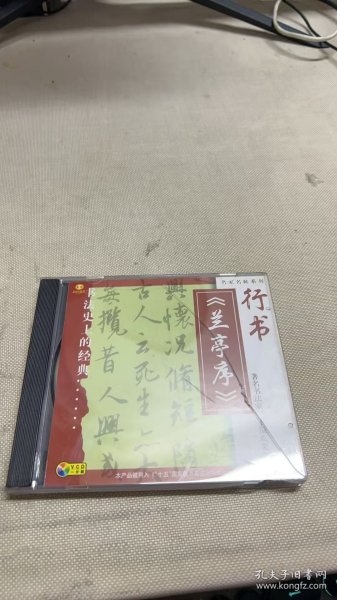 名家名帖系列
行书
《兰亭序》
著名书法
书法史上的经典……
興懷況脩短隨
古人云死生
每攬昔人興
VCD
本产品被列入"十五"国家
孔夫子旧书网